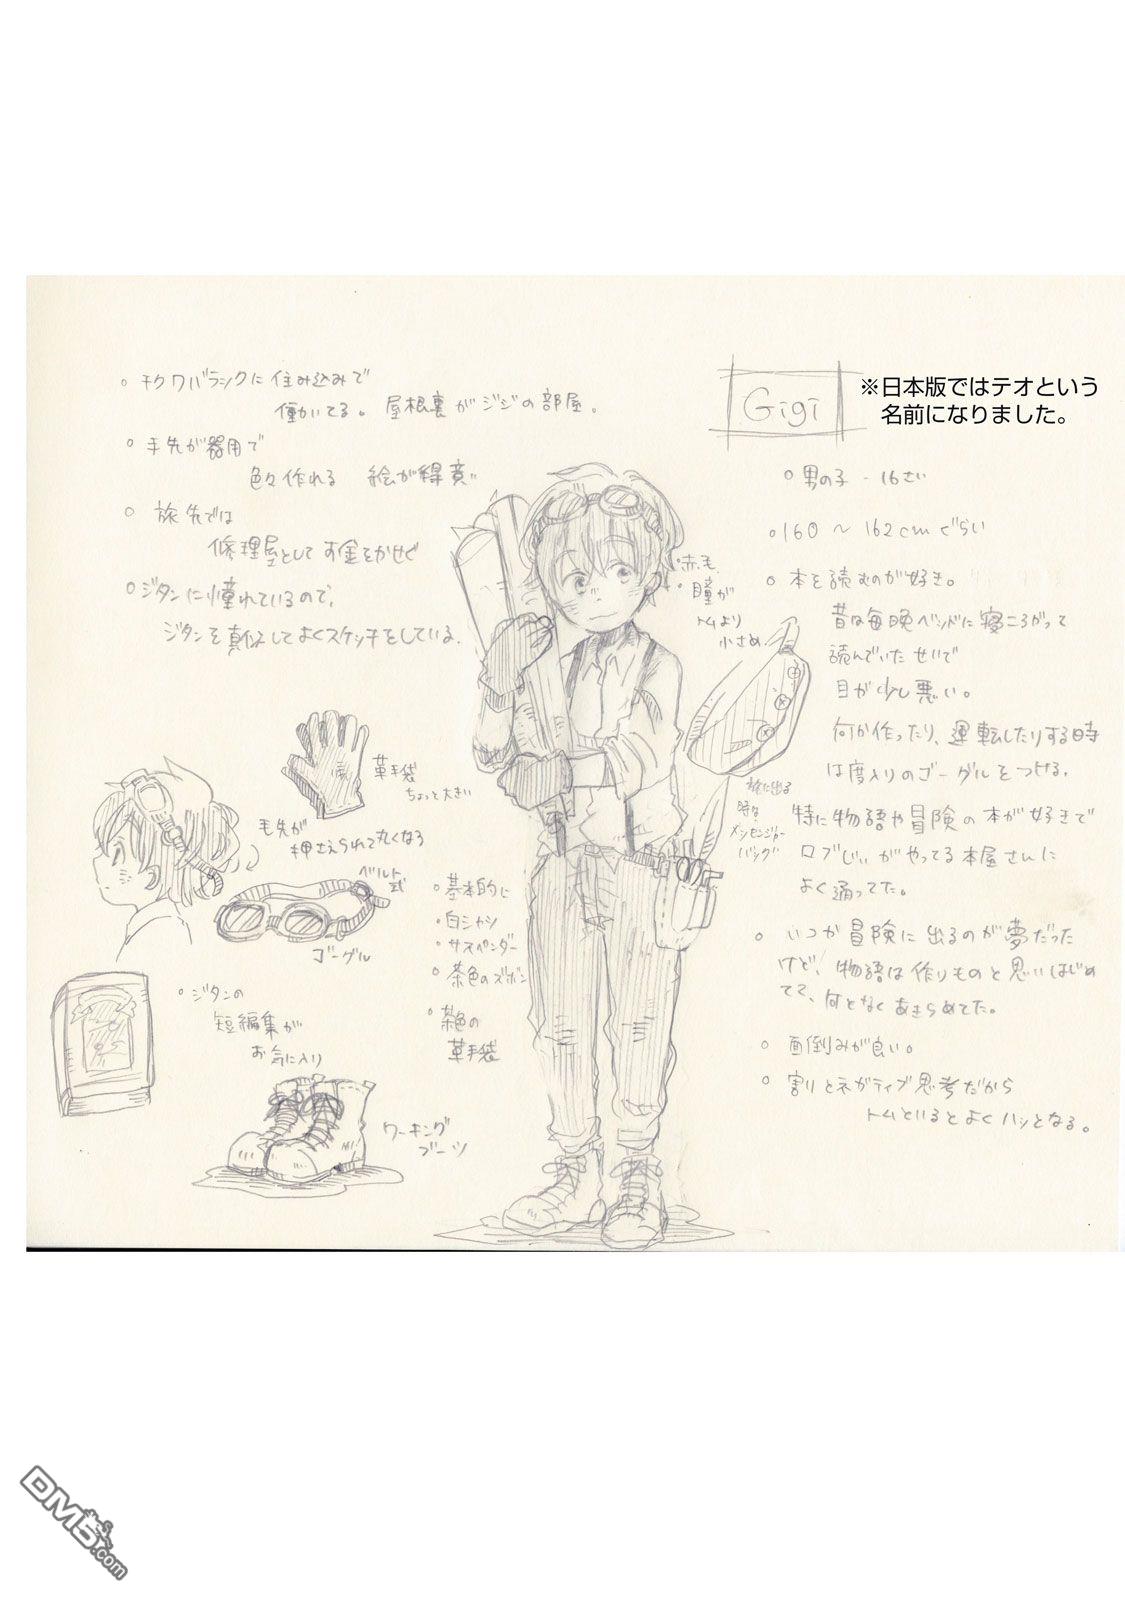 Gigi
※日本版ではテオという
名前になりました。
○男の子 - 16さい
○160 ～ 162cmぐらい
○本を読むのが好き。
昔は毎晩ベッドに寝ころがって
読んでいたせいで
目が少し悪い。
何か作ったり、運転したりする時
は度入りのゴーグルをつける。
特に物語や冒険の本が好きで
ロブじいがやってる本屋さんに
よく通ってた。
○いつか冒険に出るのが夢だった
けど、物語は作りものと思いはじめ
てて、何となくあきらめてた。
○面倒みが良い。
○割とネガティブ思考だから
トムといるとよくハッとなる。
○チクワパランクに住み込みで
働いてる。屋根裏がジジの部屋。
○手先が器用で
色々作れる 絵が得意
○旅先では
修理屋として お金をかせぐ
○ジタンに憧れているので、
ジタンを真似してよくスケッチをしている.
・赤毛
・瞳が
トムより
小さめ
旅に出る
時は
メッセンジャー
バッグ
革手袋
ちょっと大きい
毛先が
押さえられて丸くなる
ベルト
式
ゴーグル
・基本的に
・白シャツ
・サスペンダー
・茶色のズボン
・茶色の
革手袋
・ジタンの
短編集が
お気に入り
ワーキング
ブーツ
DM5.com